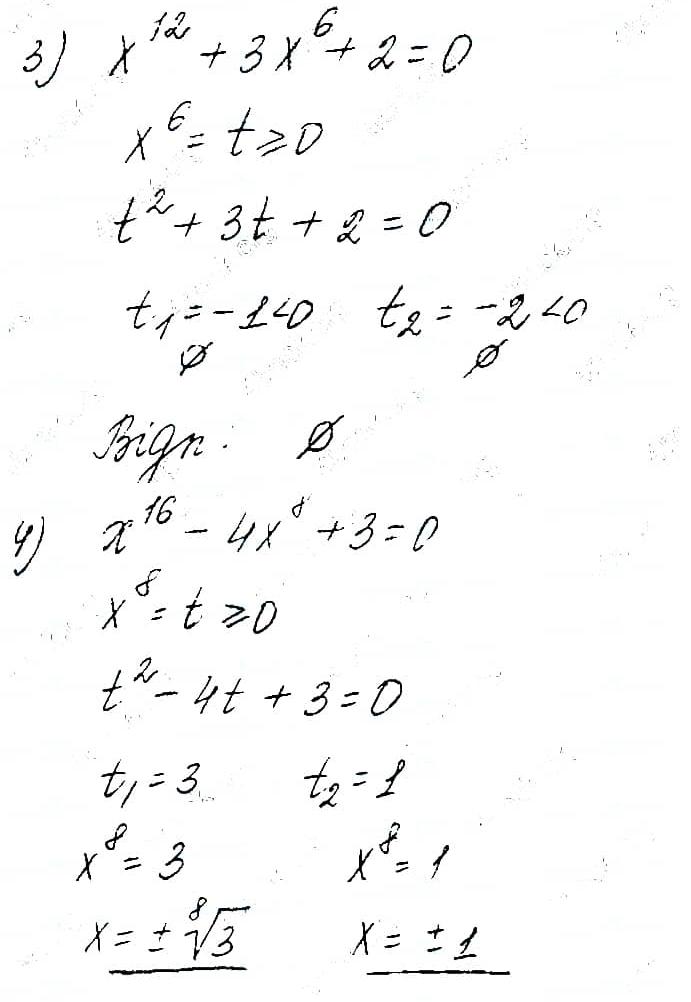 3) x¹² + 3x⁶ + 2 = 0
x⁶ = t ⩾ 0
t² + 3t + 2 = 0
t₁ = -1 < 0 t₂ = -2 < 0
∅ ∅
Відп. : ∅
4) x¹⁶ - 4x⁸ + 3 = 0
x⁸ = t ⩾ 0
t² - 4t + 3 = 0
t₁ = 3 t₂ = 1
x⁸ = 3 x⁸ = 1
x = ± ⁸√3 x = ± 1